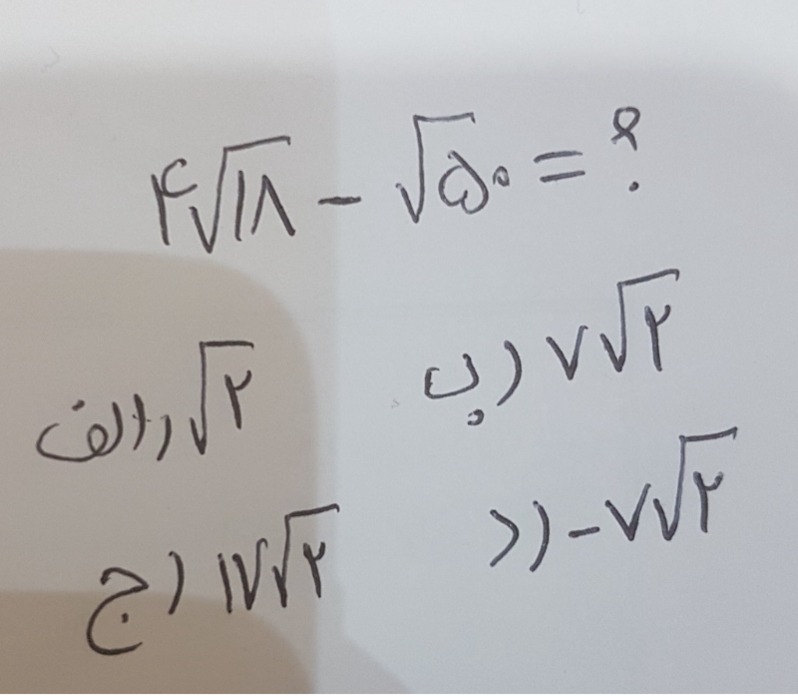 ۴√۱۸ - √۵۰ = ؟
الف) √۲ ب) ۷√۲
ج) ۱۷√۲ د) -۷√۲